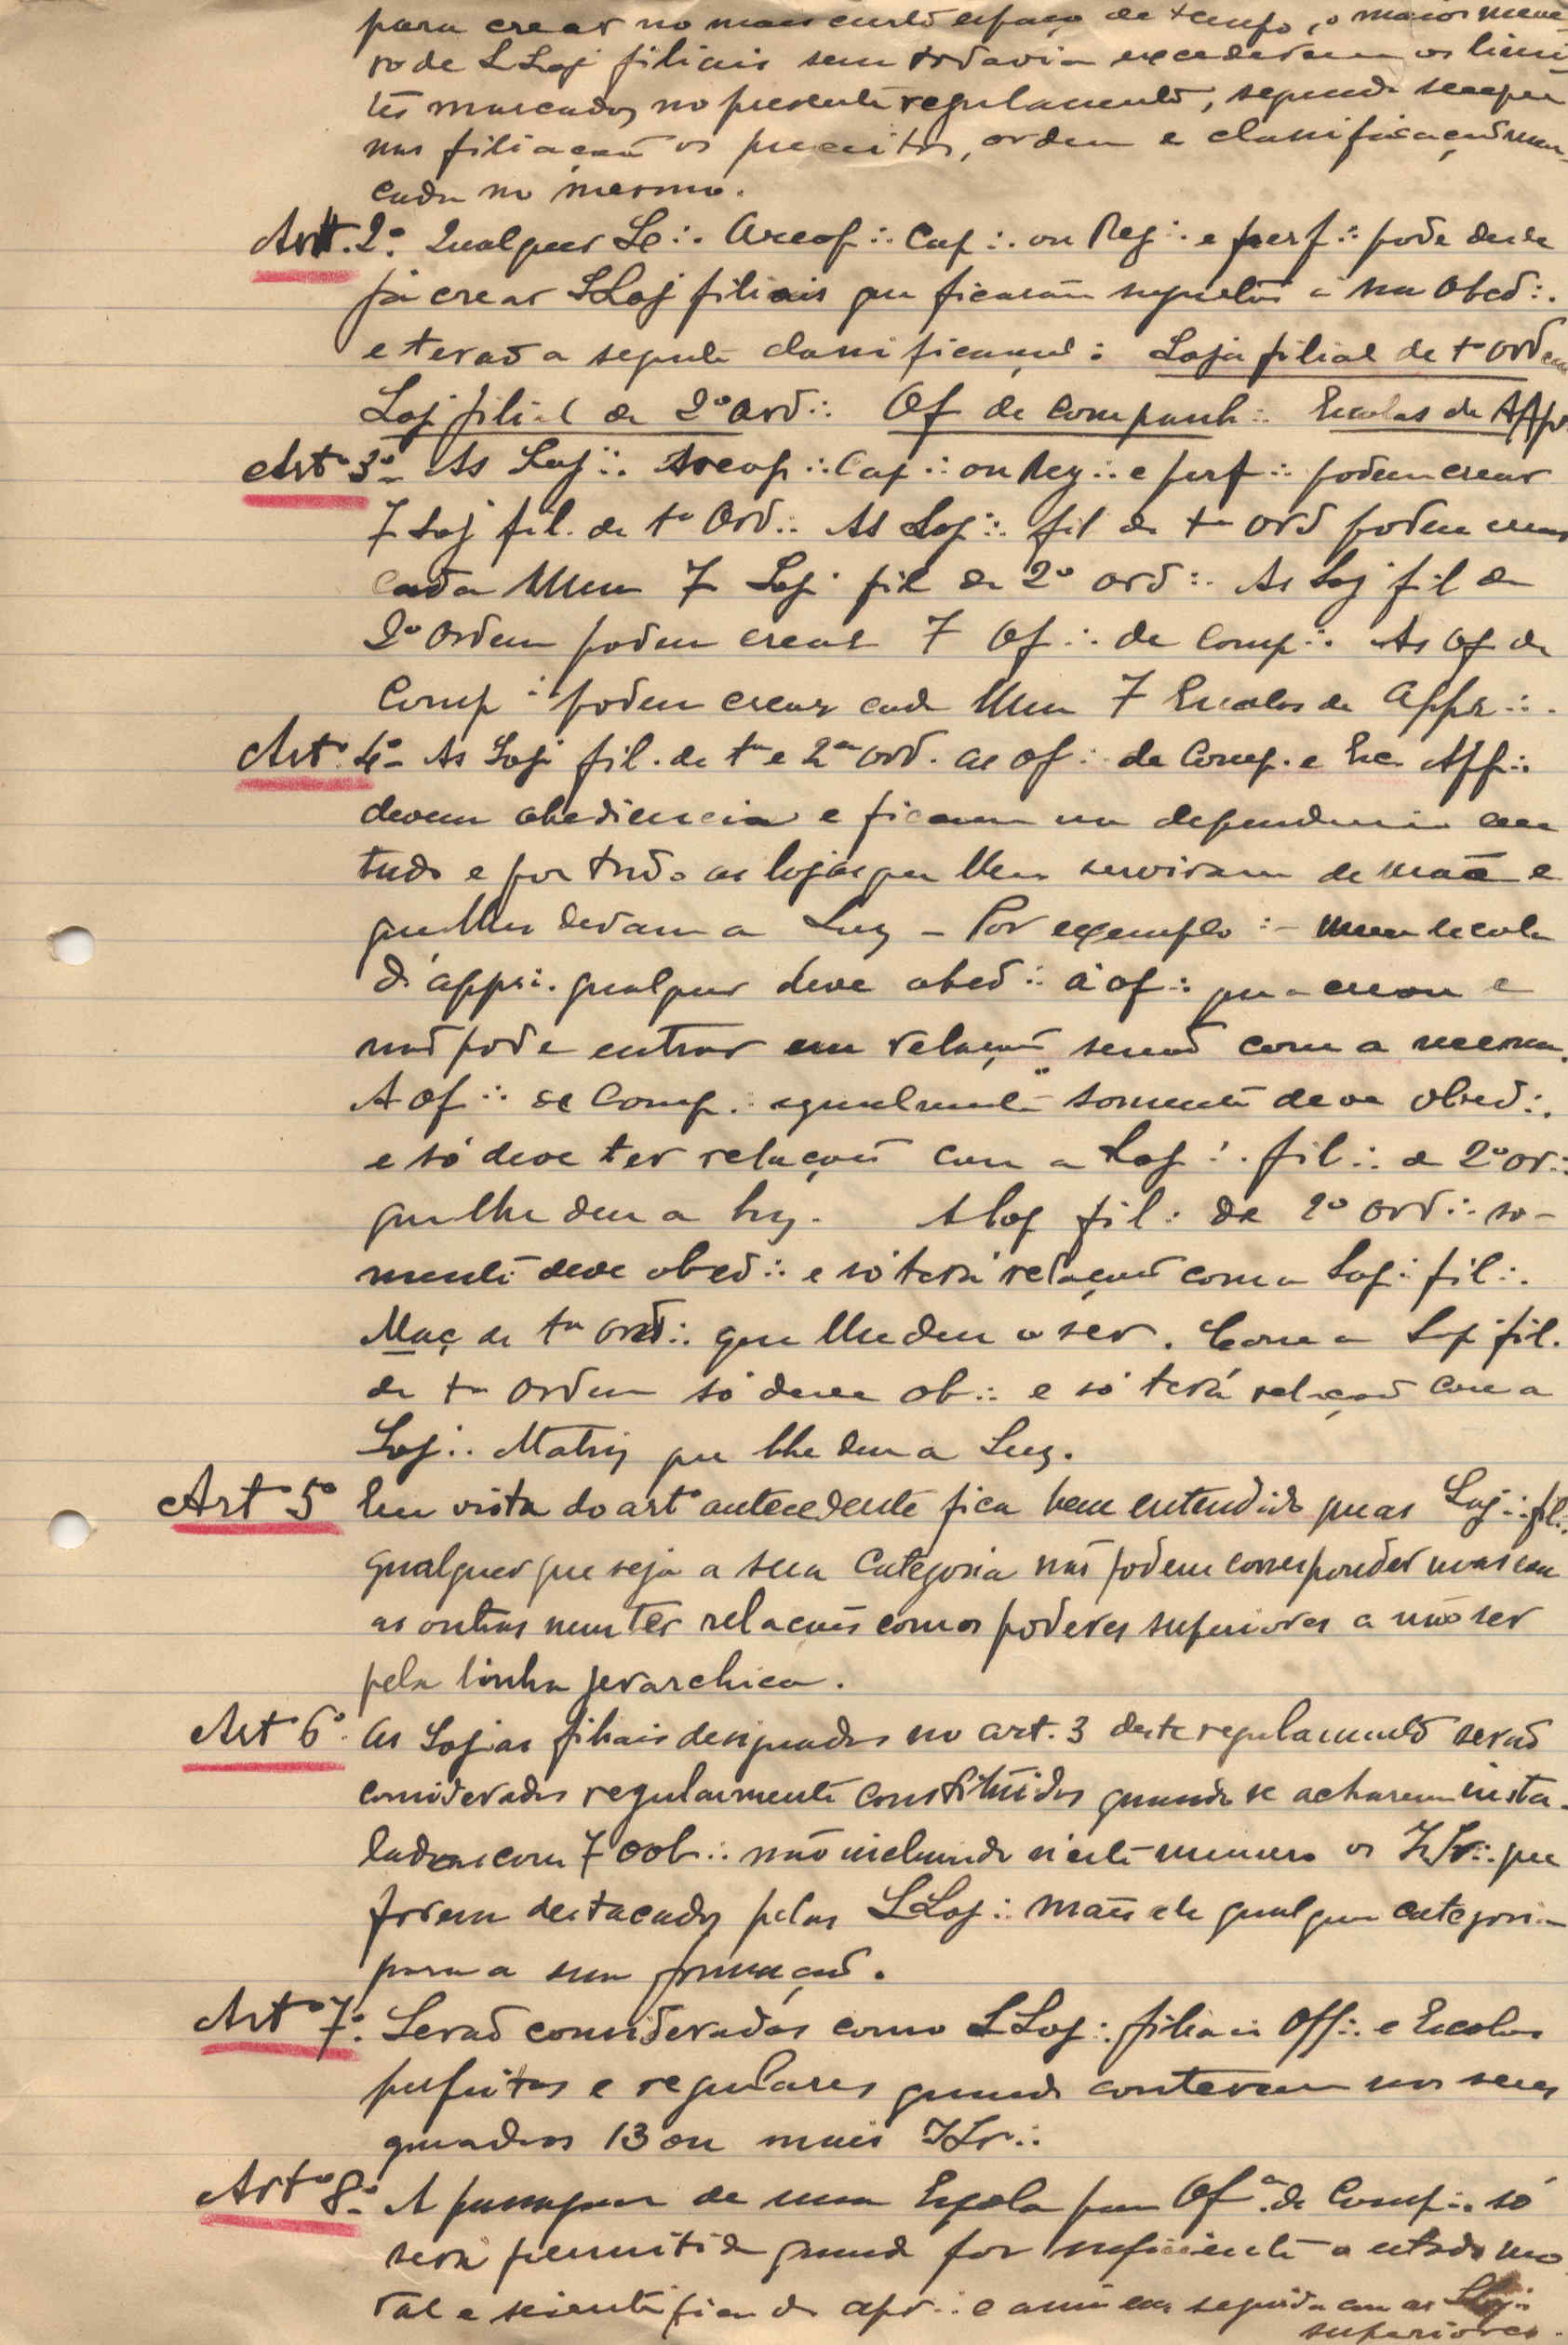 para crear no mais curto espaço de tempo, o maior nume-
ro de LLoj filiais sem todavia excederem os limi
tes marcados no presente regulamento, seguindo sempre
nas filiações os preceitos, ordem e classificação mar-
cada no mesmo.
Art. 2º. Qualquer Areop∴ Cap∴ ou Reg∴ e perf∴ pode desde
já crear LLoj filiais que ficaram sugeitas á sua Obed∴
e terão a seguinte classificação: Loja filial de 1ª Ordem
Loj filial de 2ª Ord∴ Of de Companh∴ Escolas de App
Artº 3º- As Loj∴ Areop∴ Cap∴ ou Reg∴ e perf∴ podem crear
7 Loj fil. de 1ª Ord∴ As Loj∴ fil de 1ª Ord podem crear
cada uma 7 Loj fil de 2ª ord∴ As Loj fil de
2ª Ordem podem crear 7 Of∴ de Comp∴ As Of de
Comp∴ podem crear cada uma 7 Escolas de Appr∴
Artº 4º- As Loj fil. de 1ª e 2ª ord. as Of∴ de Comp. e Esc App∴
devem obediencia e ficam na dependencia em
tudo e por tudo as lojas que lhes serviram de mãe e
que lhes deram a Luz - Por exemplo:- uma escola
d'appr∴ qualquer deve obed∴ á of∴ que a creou e
não pode entrar em relação senão com a mesma.
A of∴ de Comp∴ egualmente somente deve obed∴
e só deve ter relações com a Loj∴ fil∴ de 2ª or∴
que lhe deu a luz. A loj fil∴ de 2ª ord∴ so-
mente deve obed∴ e só terá relações com a Loj∴ fil∴
Maç de 1ª ord∴ que lhe deu o ser. E como a Loj fil.
de 1ª ordem só deve ob∴ e só terá relação com a
Loj∴ Matriz que lhe deu a Luz.
Artº 5º Em vista do artº antecedente fica bem entendido que as Loj∴ fil∴
qualquer que seja a sua categoria não podem corresponder umas com
as outras nem ter relações com os poderes superiores a não ser
pela linha jerarchica.
Artº 6º. As Lojas filiais designadas no art. 3 deste regulamento serão
consideradas regularmente constituidas quando se acharem insta-
ladas com 7 oob∴ não incluindo n'este numero os IIr∴ que
forem destacados pelas LLoj∴ mães de qualquer categoria
para a sua formação.
Artº 7º. Serão consideradas como LLoj∴ filiais Off∴ e Escolas
perfeitas e regulares quando conterem nos seus
quadros 13 ou mais IIr∴
Artº 8º- A passagem de uma Escola para Ofª de Comp∴ só
será permitida quando for suficiente o estado mo
ral e scientifico do apr∴ e assim em seguida com as LLoj∴
superiores.